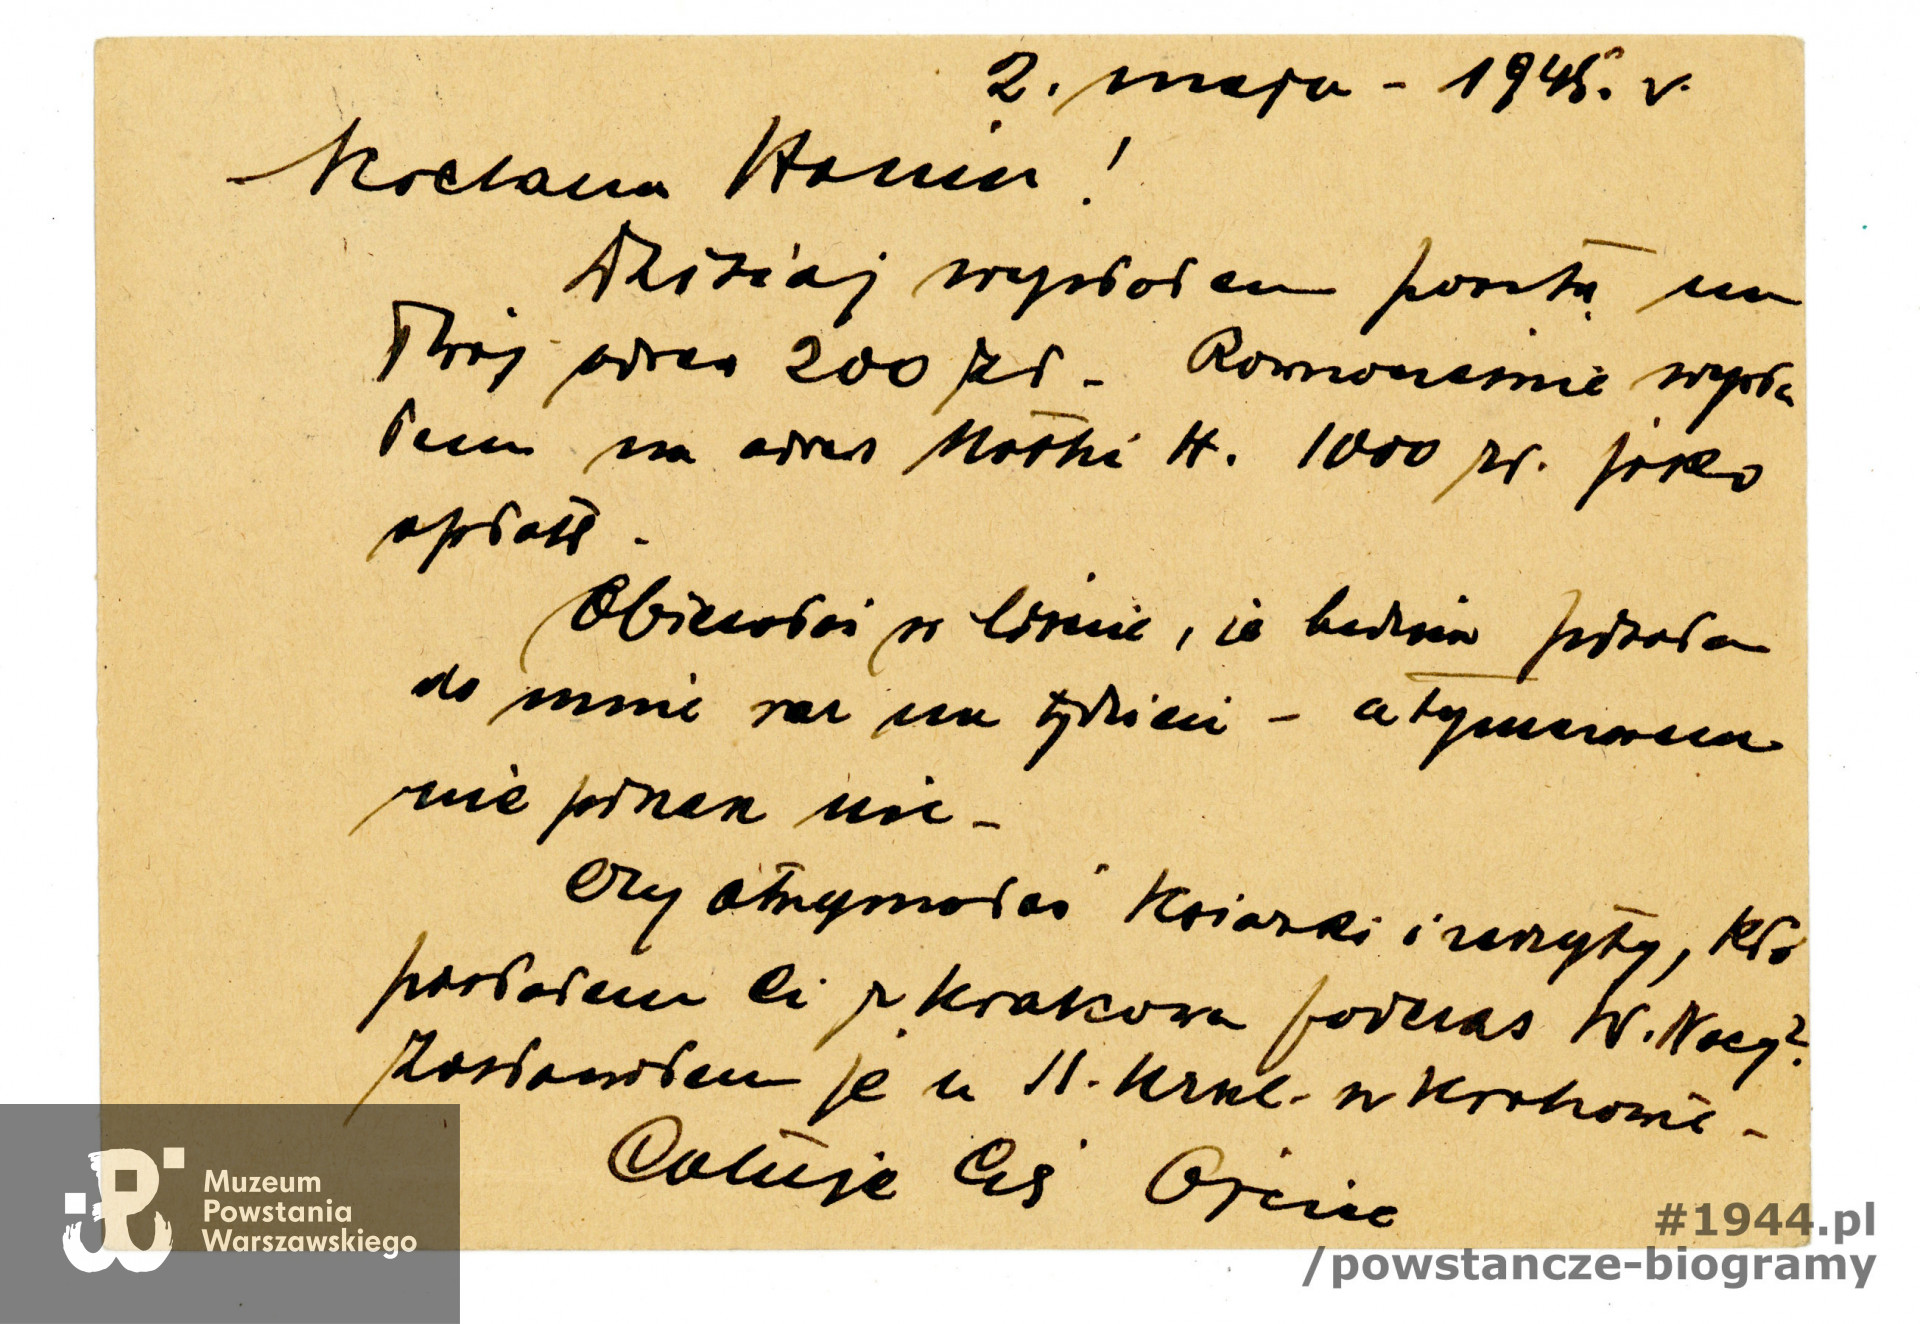 2. maja - 1945. r.
Kochana Haniu!
Dzisiaj wysłałem pocztą na
Twój adres 200 zł - Równocześnie wysła
łem na adres Matki H. 1000 zł. jako
opłatę -
Obiecałaś w liście, że będziesz pisała
do mnie raz na tydzień -
nie
Czy otrzymałaś książki i zeszyty, któ
posłałem Ci z Krakowa podczas W. Nocy?
Zostawiłem je u w Krakowie -
Całuję Cię Ojciec
Muzeum
Powstania
Warszawskiego
#1944.pl
/powstancze-biogramy